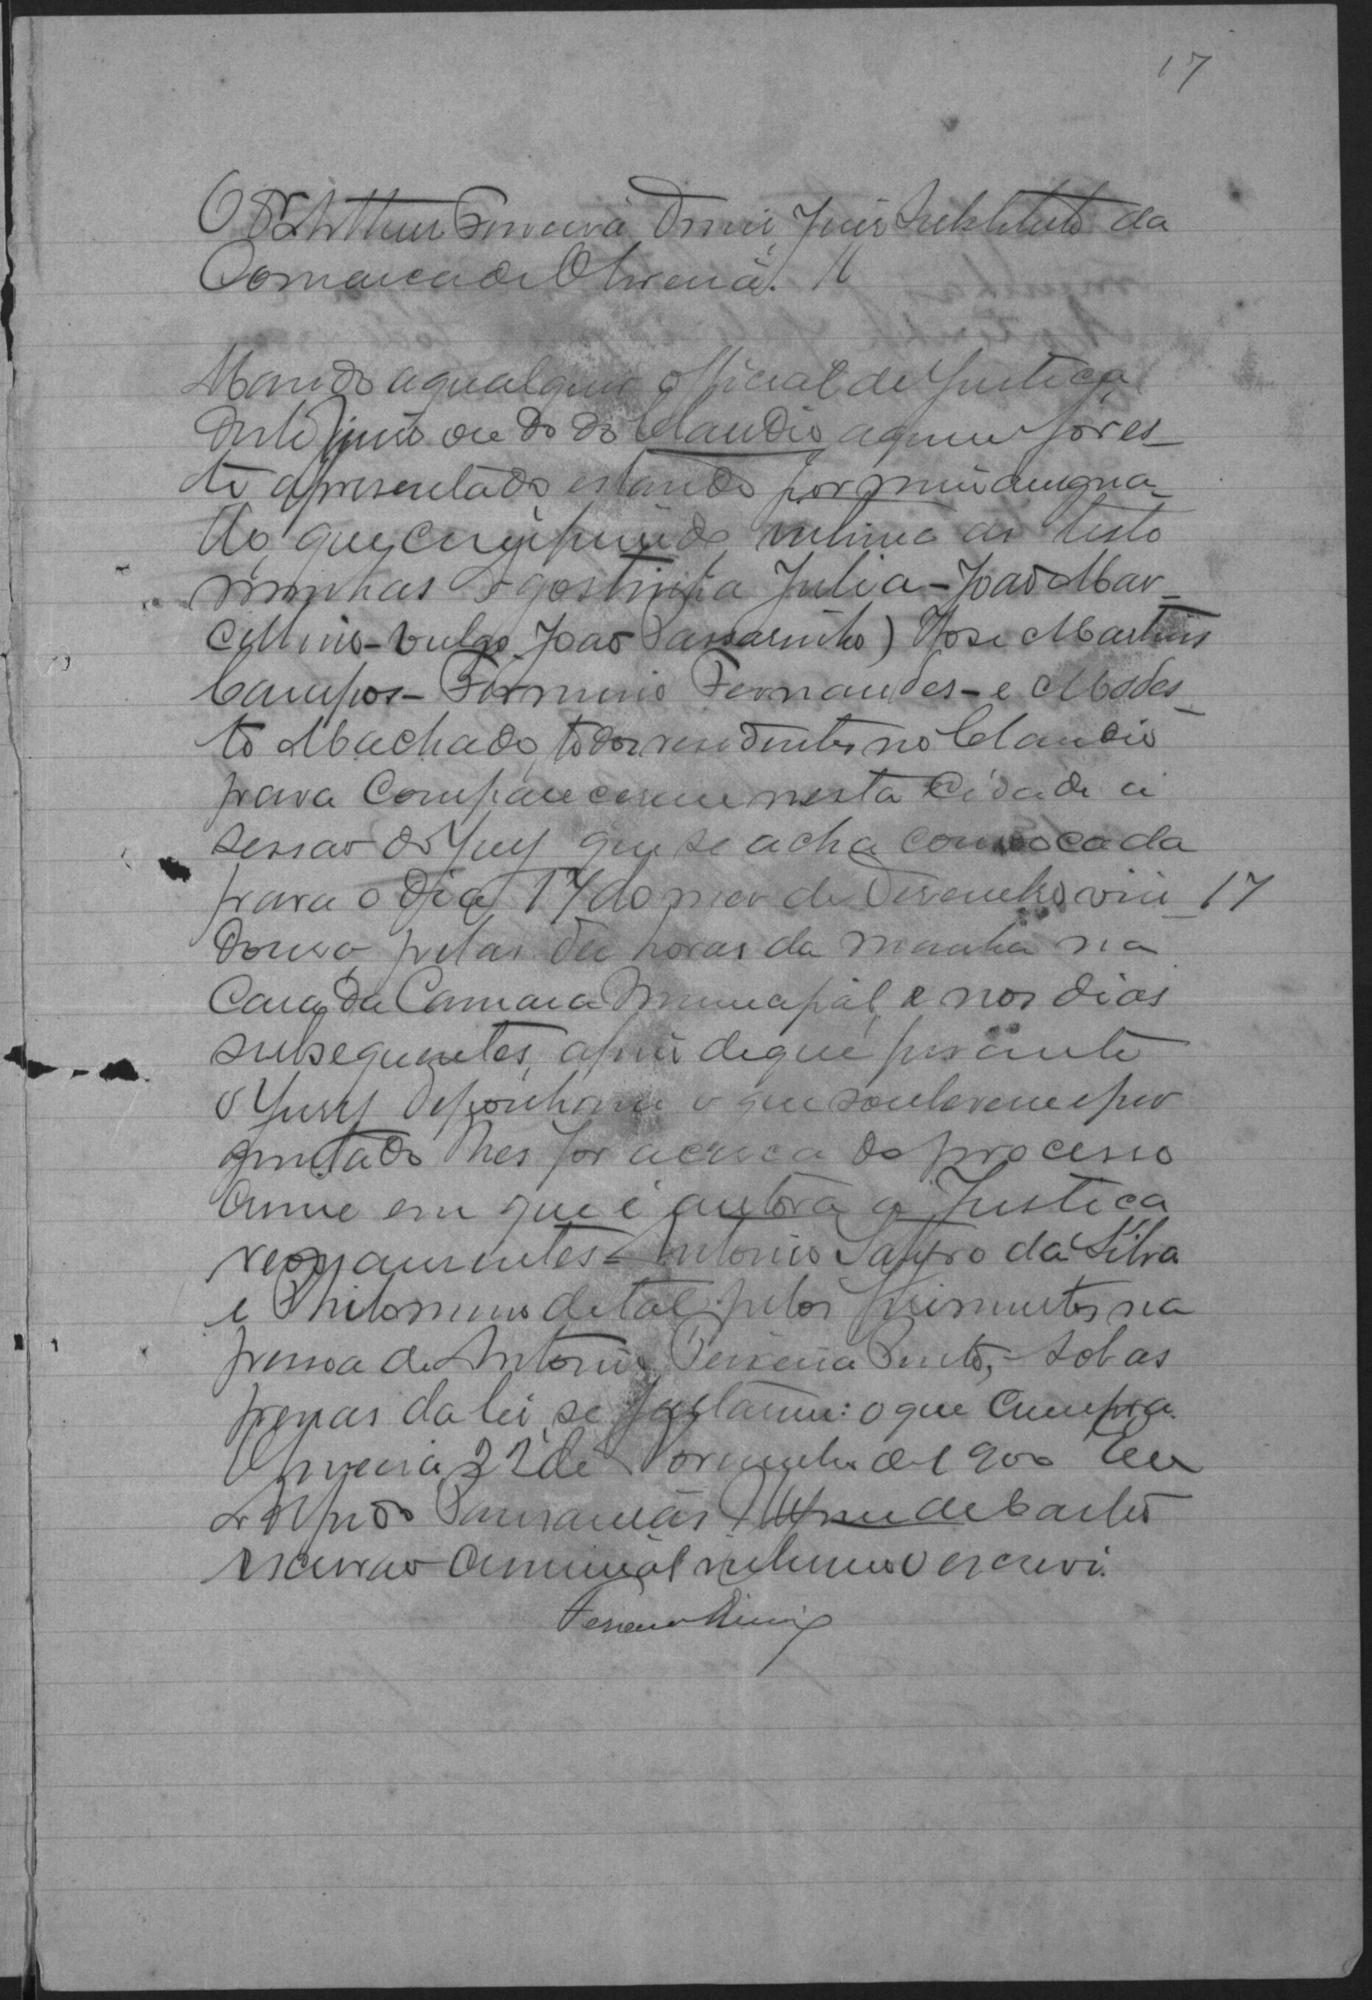 17
O Dr Arthur Ferreira Diniz Juiz Substituto da
Comarca de Oliveira. //
Mando a qualquer official de Justiça
deste Juizo ou do do Claudio a quem for es-
te apresentado estando por mim assigna-
do, que em cumprindo intime as teste
munhas Agostinha Julia - João Mar-
cellino - vulgo João Passarinho) José Martins
Campos - Firmino Fernandes - e Modes-
to Machado, todos residentes no Claudio
para comparecerem nesta Cidade a
sessão do Jury que se acha convocada
para o dia 17 do mez de Dezembro vin- 17
douro, pelas dez horas da manhã na
Casa da Camara Municipal, e nos dias
subsequentes, afim de que perante
o Jury deponham o que souberem e per
guntado lhes for acerca do processo
crime em que é autora a Justiça
reos Antonio Satyro da Silva
e Philomeno de tal, pelos ferimentos na
pessoa de Antonio Pereira Pinto, - sob as
penas da lei, se faltarem: o que cumpra.
Oliveira 22 de Novembro de 1900 Eu
de Castro
escrivão criminal interino o escrevi.
Ferreira Diniz